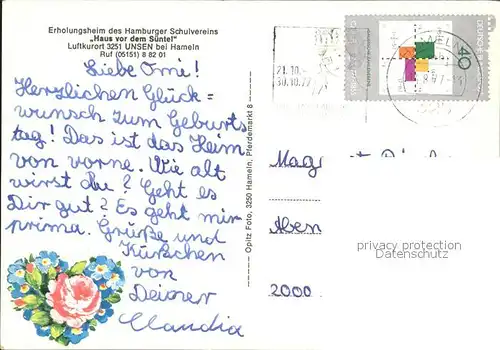 Erholungsheim des Hamburger Schulvereins
„Haus vor dem Süntel"
Luftkurort 3251 UNSEN bei Hameln
Ruf (05151) 8 82 01
Liebe Omi!
Herzlichen Glück=
wunsch zum Geburts
tag! Das ist das Heim
von vorne. Wie alt
wirst Du? Geht es
Dir gut? Es geht mir
prima. Grüße und
Küßchen
von
Deiner
Claudia
Opitz Foto, 3250 Hameln, Pferdemarkt 8
21.10.-
30.10.77
40
Mag
Aben
2000
privacy protection
Datenschutz